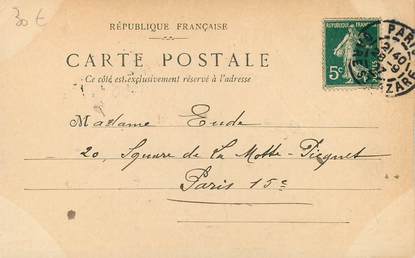 30 €
RÉPUBLIQUE FRANÇAISE
CARTE POSTALE
Ce côté est exclusivement réservé à l'adresse
5c
PAR
AZAR
Madame Eude
20, Square de La Motte-Picquet
Paris 15e